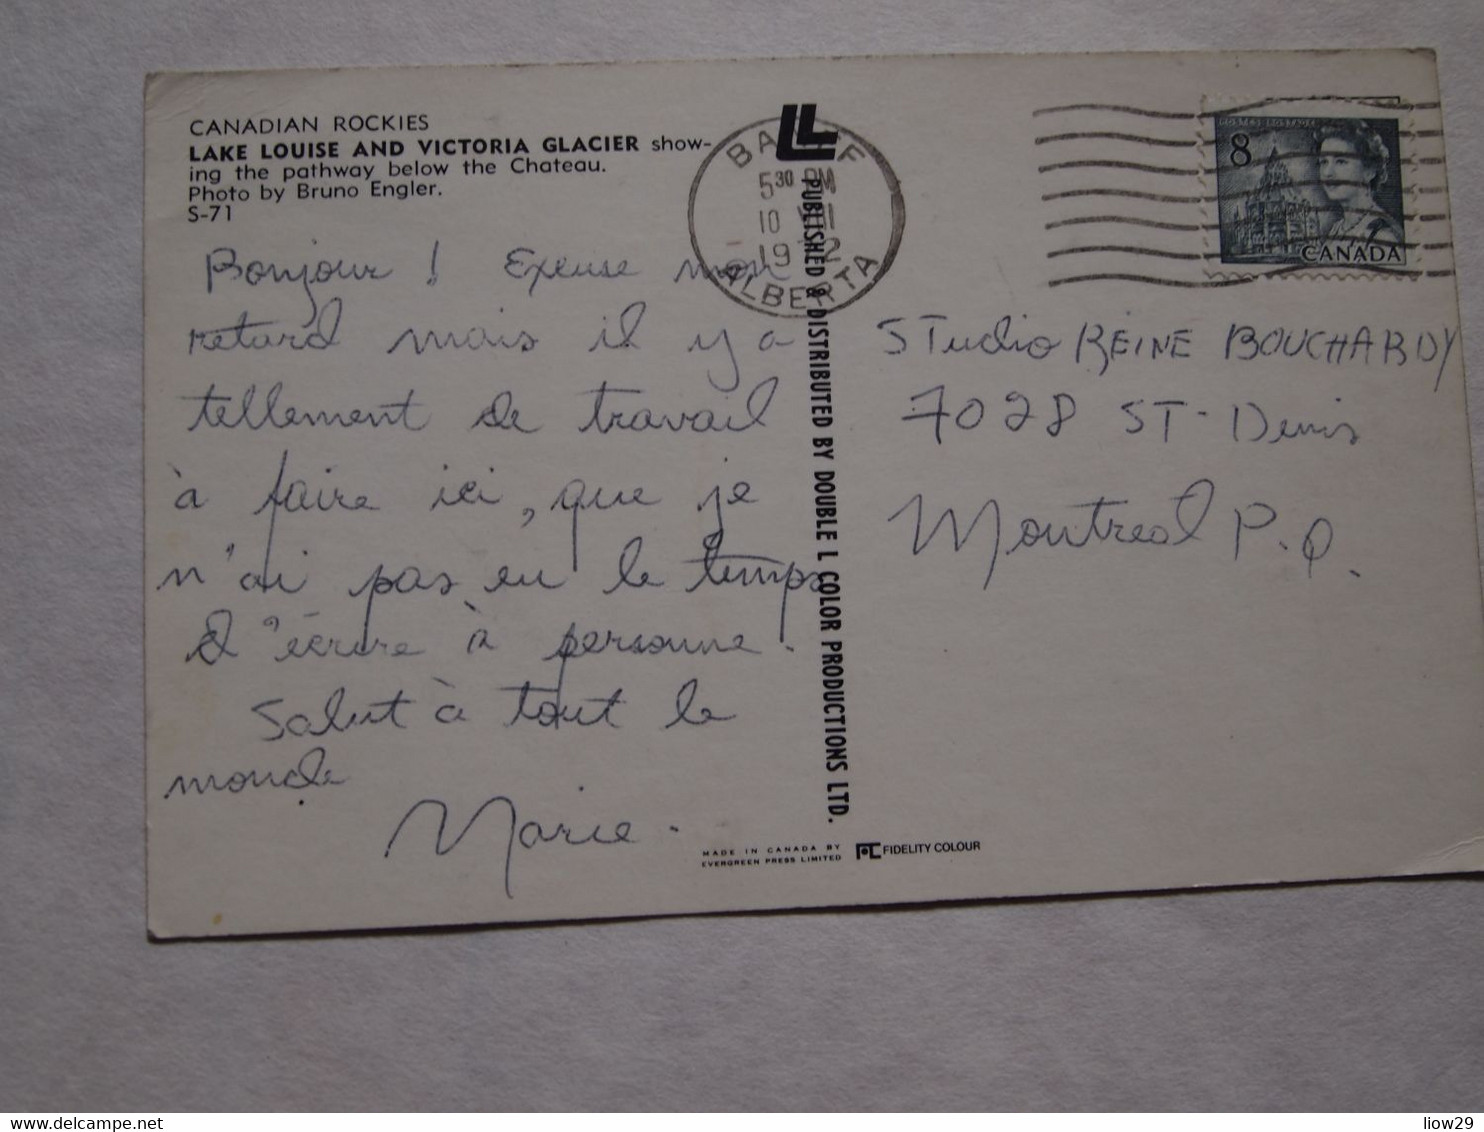 CANADIAN ROCKIES
LAKE LOUISE AND VICTORIA GLACIER show-
ing the pathway below the Chateau.
Photo by Bruno Engler.
S-71
Bonjour ! Excuse mon
retard mais il y a
tellement de travail
à faire ici, que je
n'ai pas eu le temps
d'écrire à personne.
Salut à tout le
monde
Marie.
BANFF
5 30 PM
10 VII
19
ALBERTA
PUBLISHED & DISTRIBUTED BY DOUBLE L COLOR PRODUCTIONS LTD.
8
POSTES POSTAGE
CANADA
STudio REINE BOUCHARDY
7028 ST-Denis
Montreal P.Q.
MADE IN CANADA BY
EVERGREEN PRESS LIMITED
FIDELITY COLOUR
delcampe.net
liow29